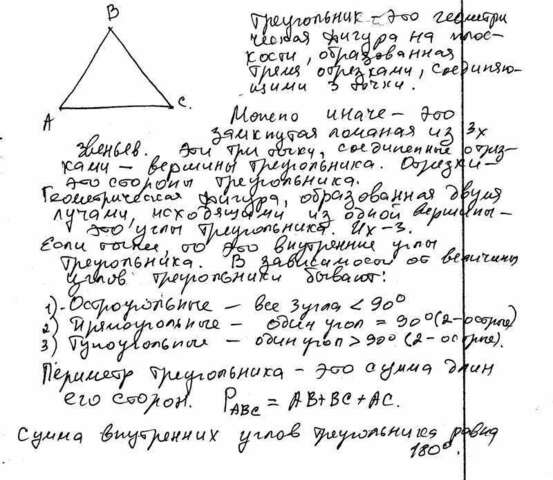 B
A
C.
Треугольник – это геометри
ческая фигура на плос-
кости, образованная
тремя отрезками, соединяю-
щими 3 точки.
Можно иначе – это
замкнутая ломаная из 3х
звеньев. Эти три точки, соединенные отрез-
ками – вершины треугольника. Отрезки –
это стороны треугольника.
Геометрическая фигура, образованная двумя
лучами, исходящими из одной вершины –
это углы треугольника. Их – 3.
Если точнее, то это внутренние углы
треугольника. В зависимости от величины
углов треугольники бывают:
1) Остроугольные – все 3 угла < 90°
2) Прямоугольные – один угол = 90° (2 – острые)
3) Тупоугольные – один угол > 90° (2 – острые).
Периметр треугольника – это сумма длин
его сторон. P ABC = AB + BC + AC.
Сумма внутренних углов треугольника равна
180°.